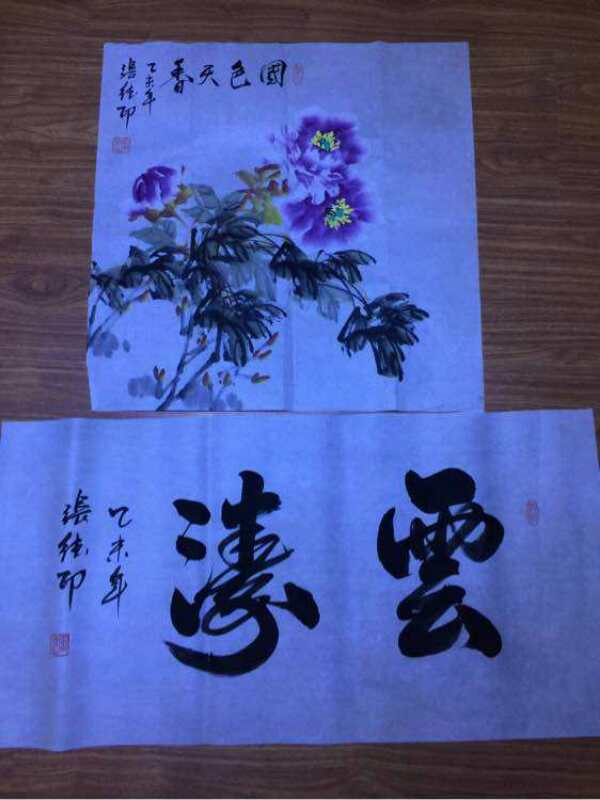 國色天香
乙未年
張德印
雲濤
乙未年
張德印